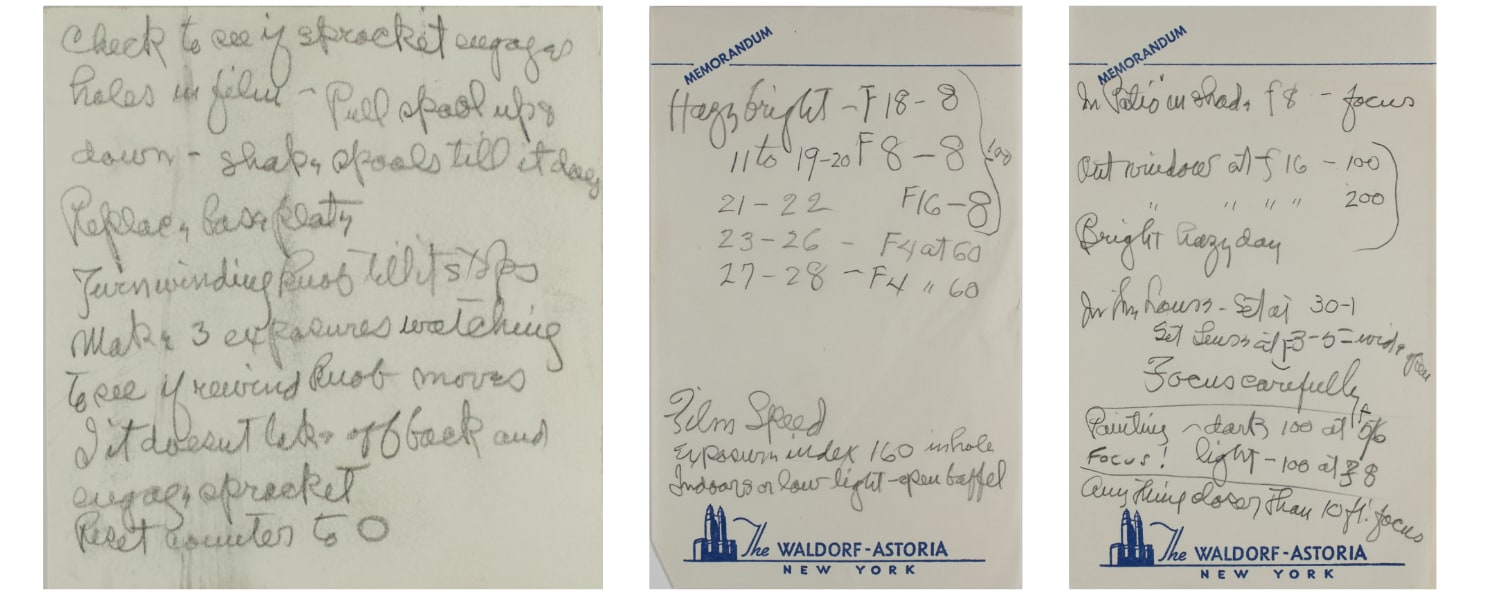 Check to see if sprocket engages
holes in film - Pull spool up &
down - shake spools till it does
Replace base plate
Turn winding knob till it stops
Make 3 exposures watching
to see if rewind knob moves
If it doesnt take off back and
engage sprocket
Reset counter to 0
MEMORANDUM
Hazy bright - F 18 - 8
11 to 19-20 F 8 - 8
100
21 - 22 F16 - 8
23 - 26 - F4 at 60
27 - 28 - F4 " 60
Film Speed
Exposure index 160 in hole
Indoors or low light - open baffel
The WALDORF-ASTORIA
NEW YORK
MEMORANDUM
In Patio in shade f 8 - focus
Out window at f 16 - 100
" " " " 200
Bright hazy day
In the house - Set at 30-1
Set Lens at F3-5 = wide open
Focus carefully
Painting - dark 100 at
Focus! light - 100 at 8
Anything closer than 10 ft. focus
The WALDORF-ASTORIA
NEW YORK